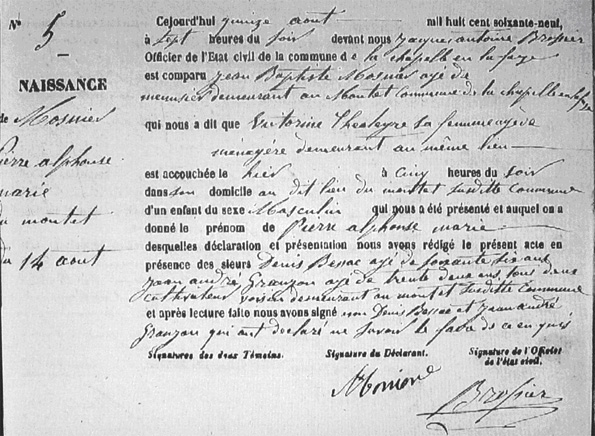 N° 5
NAISSANCE
de Mosnier
Pierre alphonse
marie
du montet
du 14 aout
Cejourd'hui quinze aout mil huit cent soixante-neuf,
à sept heures du soir devant nous Jacques antoine Brossier
Officier de l'Etat civil de la commune de la chapelle en la faye
est comparu Jean Baptiste Mosnier agé de
meunier demeurant au Montet Commune de la chapelle en lafaye
qui nous a dit que Victorine sa femme agée de
menagère demeurant au même lieu
est accouchée le hier à Cinq heures du soir
dans son domicile au dit lieu du montet susditte Commune
d'un enfant du sexe Masculin qui nous a été présenté et auquel on a
donné le prénom de Pierre alphonse marie
desquelles déclaration et présentation nous avons rédigé le présent acte en
présence des sieurs Denis Bessac agé de soixante six ans
Jean andré Granjon agé de trente deux ans, tous deux
cultivateurs voisin demeurant au montet susditte Commune
et après lecture faite nous avons signé non Denis Bessac et Jean andré
Granjon qui ont déclaré ne savoir le faire de ce enquis
Signatures des deux Témoins. Signature du Déclarant. Signature de l'Officier
de l'état civil.
Mosnier
Brossier